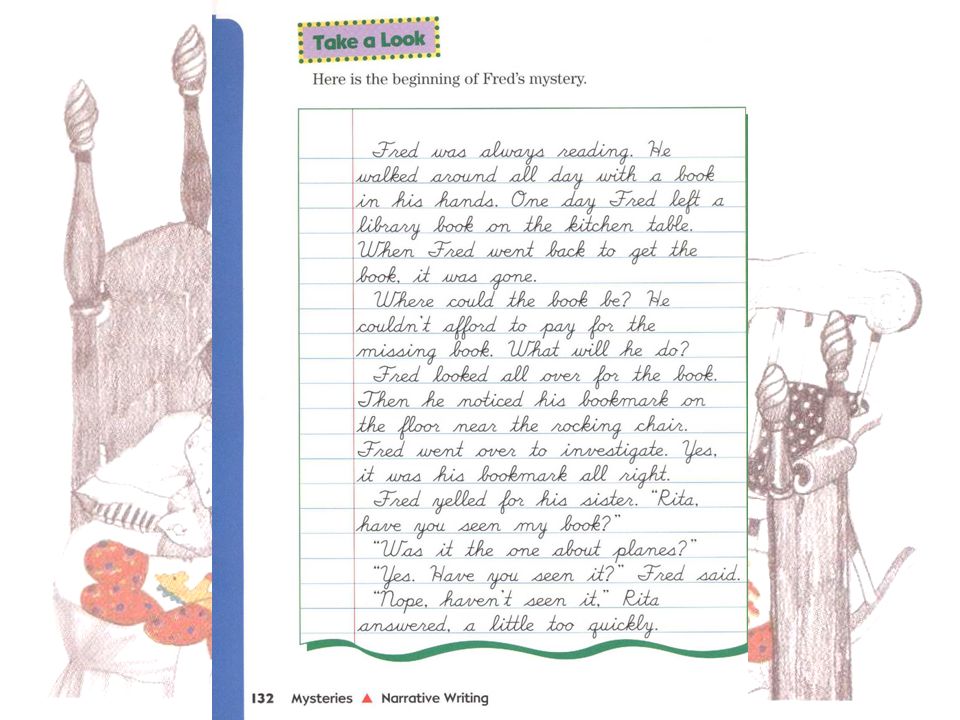 Take a Look
Here is the beginning of Fred's mystery.
Fred was always reading. He
walked around all day with a book
in his hands. One day Fred left a
library book on the kitchen table.
When Fred went back to get the
book, it was gone.
Where could the book be? He
couldn't afford to pay for the
missing book. What will he do?
Fred looked all over for the book.
Then he noticed his bookmark on
the floor near the rocking chair.
Fred went over to investigate. Yes,
it was his bookmark all right.
Fred yelled for his sister. "Rita,
have you seen my book?"
"Was it the one about planes?"
"Yes. Have you seen it?" Fred said.
"Nope, haven't seen it," Rita
answered, a little too quickly.
132 Mysteries ▲ Narrative Writing